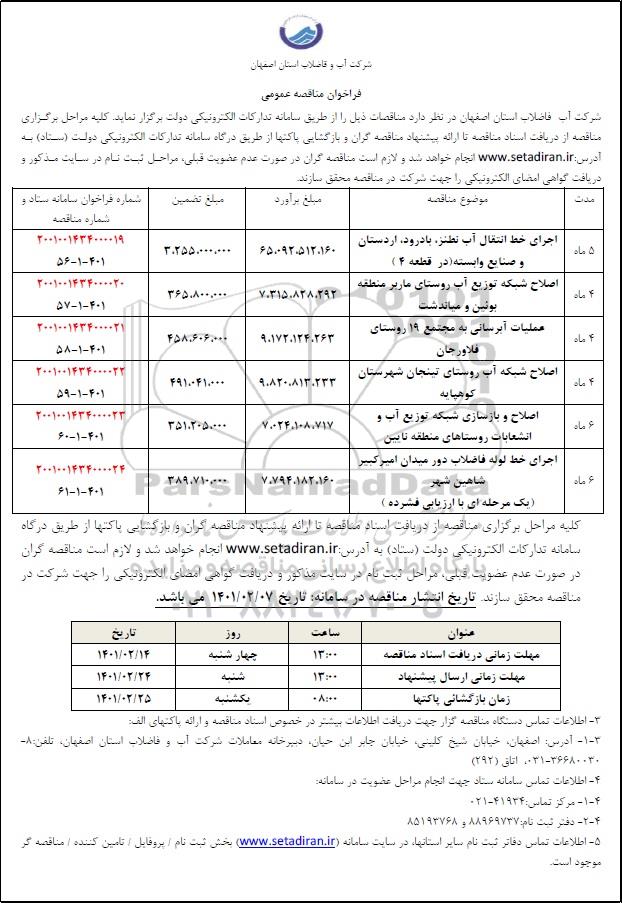 شرکت آب و فاضلاب استان اصفهان
فراخوان مناقصه عمومی
شرکت آب فاضلاب استان اصفهان در نظر دارد مناقصات ذیل را از طریق سامانه تدارکات الکترونیکی دولت برگزار نماید. کلیه مراحل برگزاری
مناقصه از دریافت اسناد مناقصه تا ارائه پیشنهاد مناقصه گران و بازگشایی پاکتها از طریق درگاه سامانه تدارکات الکترونیکی دولت (ستاد) به
آدرس:www.setadiran.ir انجام خواهد شد و لازم است مناقصه گران در صورت عدم عضویت قبلی، مراحل ثبت نام در سایت مذکور و
دریافت گواهی امضای الکترونیکی را جهت شرکت در مناقصه محقق سازند.
مدت | موضوع مناقصه | مبلغ برآورد | مبلغ تضمین | شماره فراخوان سامانه ستاد و شماره مناقصه
۵ ماه | اجرای خط انتقال آب نطنز، بادرود، اردستان و صنایع وابسته(در قطعه ۴ ) | ۶۵.۰۹۲.۵۱۲.۱۶۰ | ۳.۲۵۵.۰۰۰.۰۰۰ | ۲۰۰۱۰۰۱۴۳۴۰۰۰۰۱۹ ۵۶-۱-۴۰۱
۴ ماه | اصلاح شبکه توزیع آب روستای ماربر منطقه بوئین و میاندشت | ۷.۳۱۵.۸۲۸.۲۹۲ | ۳۶۵.۸۰۰.۰۰۰ | ۲۰۰۱۰۰۱۴۳۴۰۰۰۰۲۰ ۵۷-۱-۴۰۱
۴ ماه | عملیات آبرسانی به مجتمع ۱۹ روستای فلاورجان | ۹.۱۷۲.۱۲۴.۲۶۳ | ۴۵۸.۶۰۶.۰۰۰ | ۲۰۰۱۰۰۱۴۳۴۰۰۰۰۲۱ ۵۸-۱-۴۰۱
۴ ماه | اصلاح شبکه آب روستای تینجان شهرستان کوهپایه | ۹.۸۲۰.۸۱۳.۲۳۳ | ۴۹۱.۰۴۱.۰۰۰ | ۲۰۰۱۰۰۱۴۳۴۰۰۰۰۲۲ ۵۹-۱-۴۰۱
۶ ماه | اصلاح و بازسازی شبکه توزیع آب و انشعابات روستاهای منطقه نایین | ۷.۰۲۴.۱۰۸.۷۱۷ | ۳۵۱.۲۰۵.۰۰۰ | ۲۰۰۱۰۰۱۴۳۴۰۰۰۰۲۳ ۶۰-۱-۴۰۱
۶ ماه | اجرای خط لوله فاضلاب دور میدان امیرکبیر شاهین شهر (یک مرحله ای با ارزیابی فشرده ) | ۷.۷۹۴.۱۸۲.۱۶۰ | ۳۸۹.۷۱۰.۰۰۰ | ۲۰۰۱۰۰۱۴۳۴۰۰۰۰۲۴ ۶۱-۱-۴۰۱
کلیه مراحل برگزاری مناقصه از دریافت اسناد مناقصه تا ارائه پیشنهاد مناقصه گران و بازگشایی پاکتها از طریق درگاه
سامانه تدارکات الکترونیکی دولت (ستاد) به آدرس:www.setadiran.ir انجام خواهد شد و لازم است مناقصه گران
در صورت عدم عضویت قبلی، مراحل ثبت نام در سایت مذکور و دریافت گواهی امضای الکترونیکی را جهت شرکت در
مناقصه محقق سازند. تاریخ انتشار مناقصه در سامانه: تاریخ ۱۴۰۱/۰۲/۰۷ می باشد.
عنوان | ساعت | روز | تاریخ
مهلت زمانی دریافت اسناد مناقصه | ۱۳:۰۰ | چهار شنبه | ۱۴۰۱/۰۲/۱۴
مهلت زمانی ارسال پیشنهاد | ۱۳:۰۰ | شنبه | ۱۴۰۱/۰۲/۲۴
زمان بازگشائی پاکتها | ۰۸:۰۰ | یکشنبه | ۱۴۰۱/۰۲/۲۵
۳- اطلاعات تماس دستگاه مناقصه گزار جهت دریافت اطلاعات بیشتر در خصوص اسناد مناقصه و ارائه پاکتهای الف:
۱-۳- آدرس: اصفهان، خیابان شیخ کلینی، خیابان جابر ابن حیان، دبیرخانه معاملات شرکت آب و فاضلاب استان اصفهان، تلفن:۸-
۰۳۱-۳۶۶۸۰۰۳۰، اتاق (۲۹۲)
۴- اطلاعات تماس سامانه ستاد جهت انجام مراحل عضویت در سامانه:
۱-۴- مرکز تماس:۴۱۹۳۴-۰۲۱
۲-۴- دفتر ثبت نام:۸۸۹۶۹۷۳۷ و ۸۵۱۹۳۷۶۸
۵- اطلاعات تماس دفاتر ثبت نام سایر استانها، در سایت سامانه (www.setadiran.ir) بخش ثبت نام / پروفایل / تامین کننده / مناقصه گر
موجود است.
ParsNamadData
پایگاه اطلاع رسانی مناقصه و مزایده
۰۲۱-۸۸۳۴۹۶۷۰-۵